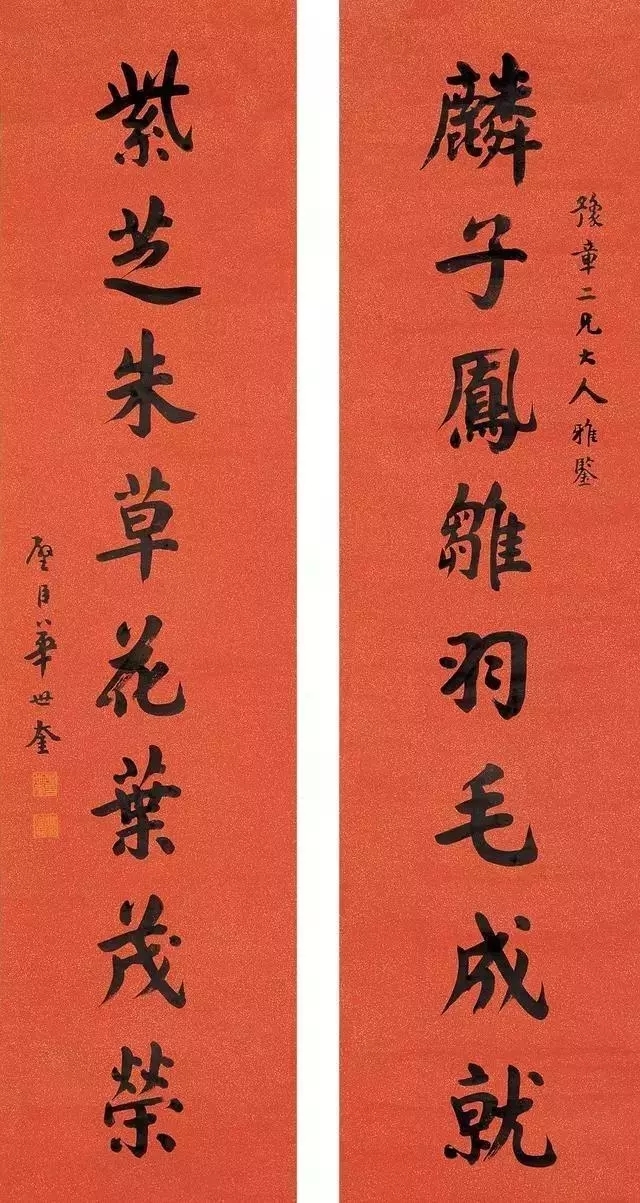 豫章二兄大人雅鑒
麟子鳳雛羽毛成就
紫芝朱草花葉茂榮
華世奎